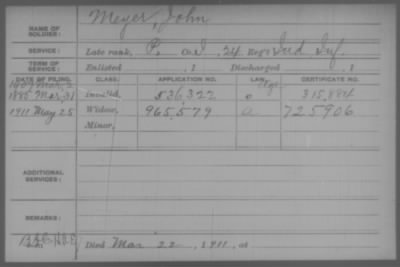 NAME OF SOLDIER: Meyer, John
SERVICE: Late rank, P. 24 Reg't Ind Inf.
TERM OF SERVICE: Enlisted , 1 Discharged , 1
DATE OF FILING. CLASS. APPLICATION NO. LAW. CERTIFICATE NO.
1885 Mar. 31 Invalid, 536,322 315,884
1911 May 25 Widow, 965,579 a 725906
Minor,
ADDITIONAL SERVICES:
REMARKS:
Died Mar 22, 1911, at